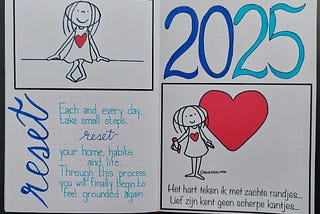 reset
Each and every day,
take small steps.
reset
your home, habits
and life.
Through this process
you will finally begin to
feel grounded again.
2025
Het hart teken ik met zachte randjes...
Lief zijn kent geen scherpe kantjes...